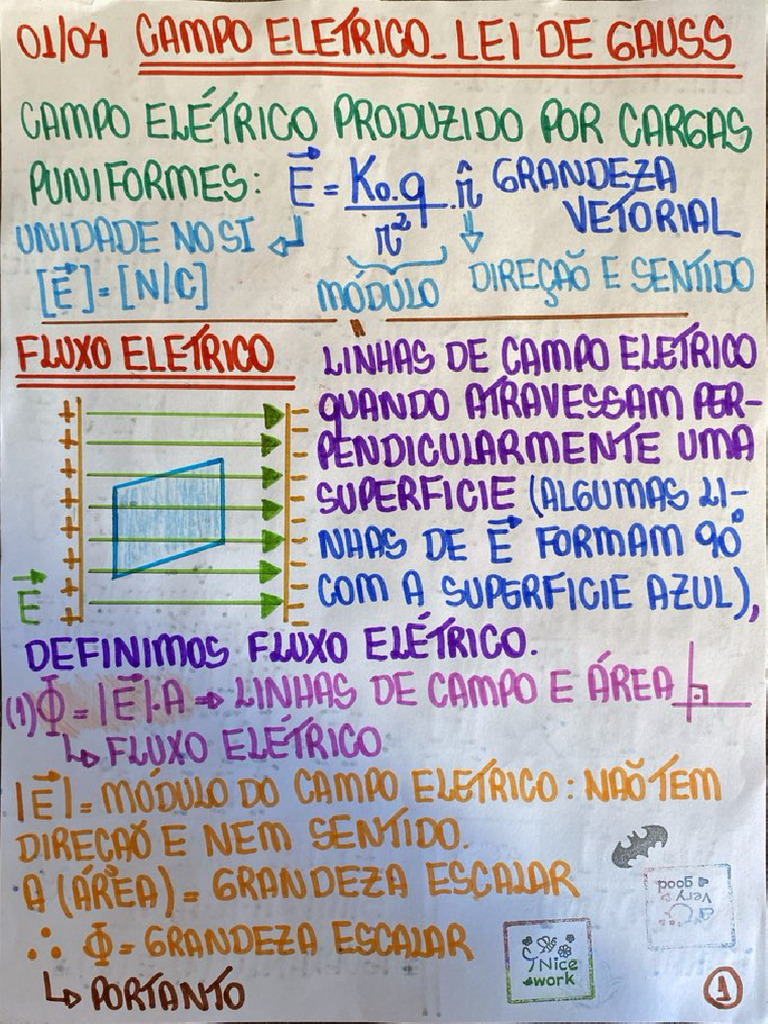 01/04 CAMPO ELETRICO_ LEI DE GAUSS
CAMPO ELÉTRICO PRODUZIDO POR CARGAS
PUNIFORMES: E⃗ = K₀.q / r² . r̂ GRANDEZA
VETORIAL
UNIDADE NO SI
[E⃗] = [N/C]
MÓDULO
DIREÇÃO E SENTIDO
FLUXO ELETRICO
LINHAS DE CAMPO ELETRICO
QUANDO ATRAVESSAM PER-
PENDICULARMENTE UMA
SUPERFICIE (ALGUMAS LI-
NHAS DE E⃗ FORMAM 90°
COM A SUPERFICIE AZUL),
E⃗
DEFINIMOS FLUXO ELÉTRICO.
(1) Φ = |E⃗|.A ⇒ LINHAS DE CAMPO E ÁREA
↳ FLUXO ELÉTRICO
|E⃗| = MÓDULO DO CAMPO ELETRICO: NÃO TEM
DIREÇÃO E NEM SENTIDO.
A (ÁREA) = GRANDEZA ESCALAR
∴ Φ = GRANDEZA ESCALAR
↳ PORTANTO
Very
good
Nice
work
1